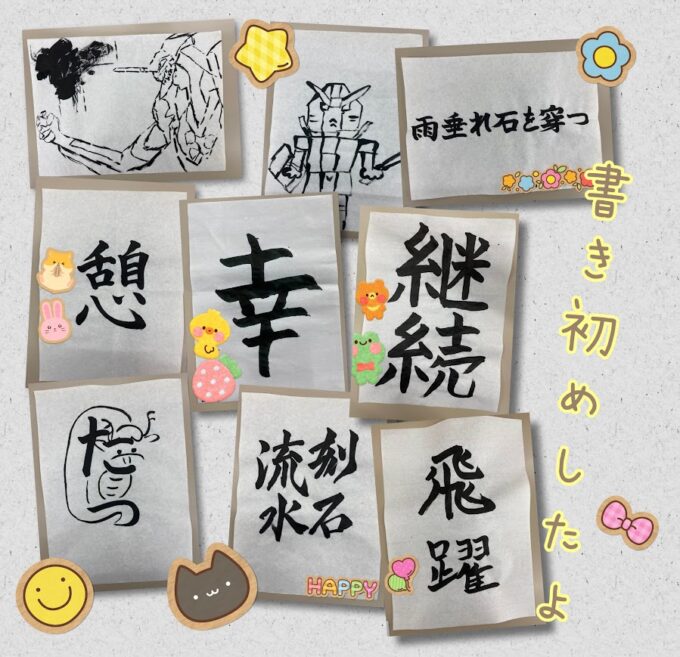 雨垂れ石を穿つ
書き初めしたよ
憩
幸
継続
刻石
流水
飛躍
HAPPY